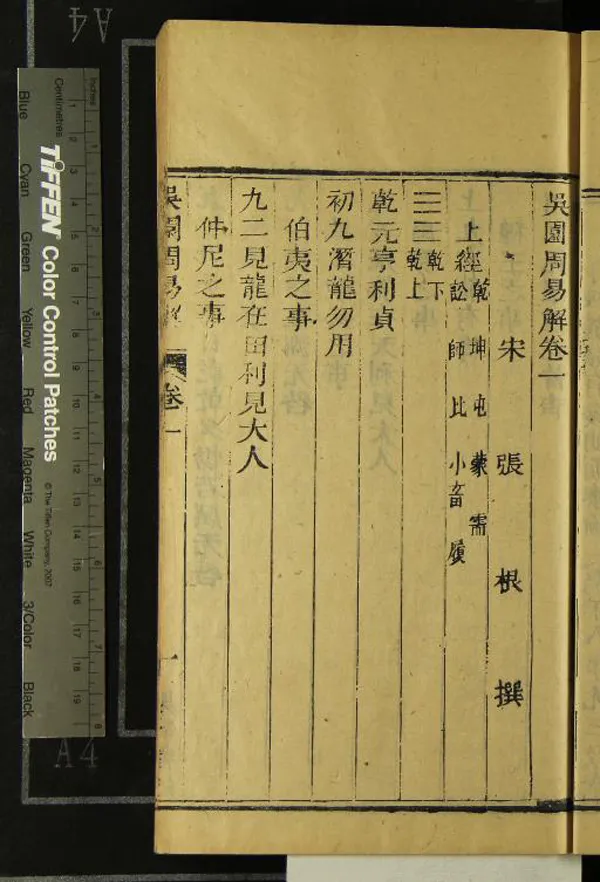 吳園周易解卷一
宋張根撰
上經乾坤屯蒙需
訟師比小畜履
☰☰乾下
乾上
乾元亨利貞
初九潛龍勿用
伯夷之事
九二見龍在田利見大人
仲尼之事
吳園周易解
卷一
一
A4
Inches
Centimetres
TIFFEN® Color Control Patches
© The Tiffen Company, 2007
Blue
Cyan
Green
Yellow
Red
Magenta
White
3/Color
Black
1 2 3 4 5 6 7 8
1 2 3 4 5 6 7 8 9 10 11 12 13 14 15 16 17 18 19
A4